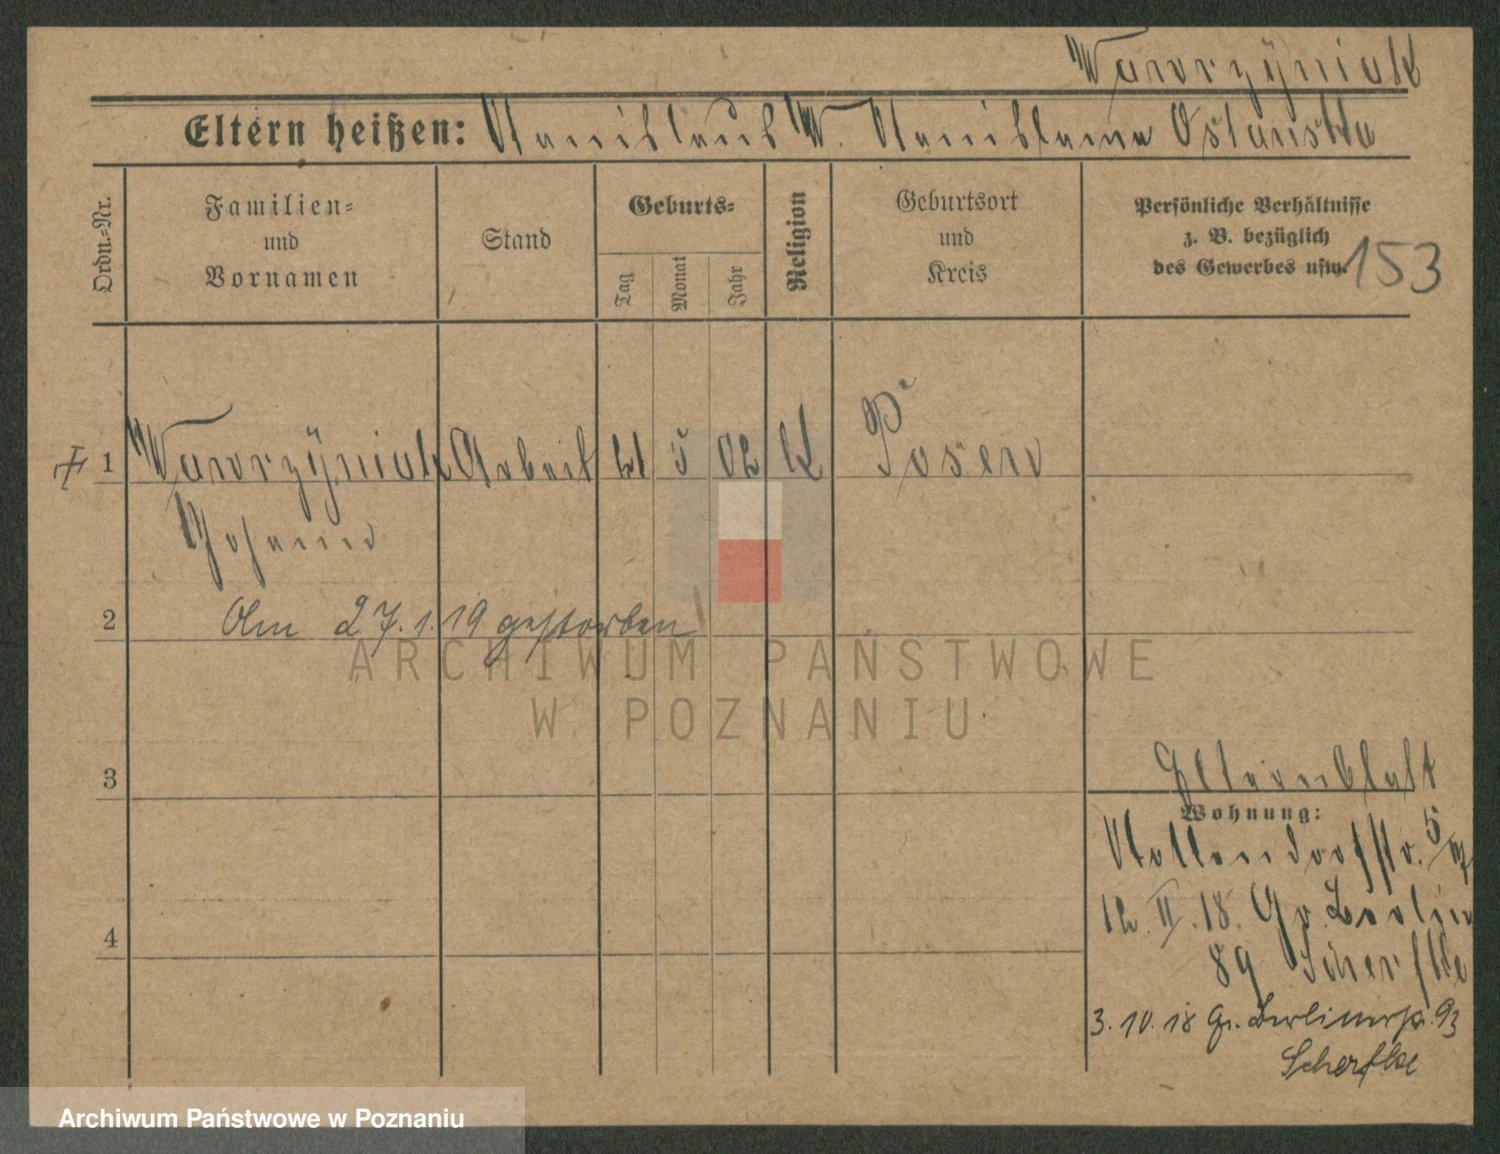 Wawrzyniak
Eltern heißen: Stanislaus W. Stanislawa Ostanska
Ordn.-Nr.
Familien-
und
Vornamen
Stand
Geburts-
Tag
Monat
Jahr
Religion
Geburtsort
und
Kreis
Persönliche Verhältnisse
z. B. bezüglich
des Gewerbes usw.
153
1 Wawrzyniak Arbeit 21 5 02 K Posen
Johann
2 Am 27.1.19 gestorben
3
4
Elternblatt
Wohnung:
Nollendorfstr. 5
12. II. 18. Gr. Berlin
89 Scherfke
3. 10. 18 Gr. Berlinerstr. 93
Scherfke
ARCHIWUM PAŃSTWOWE
W POZNANIU
Archiwum Państwowe w Poznaniu